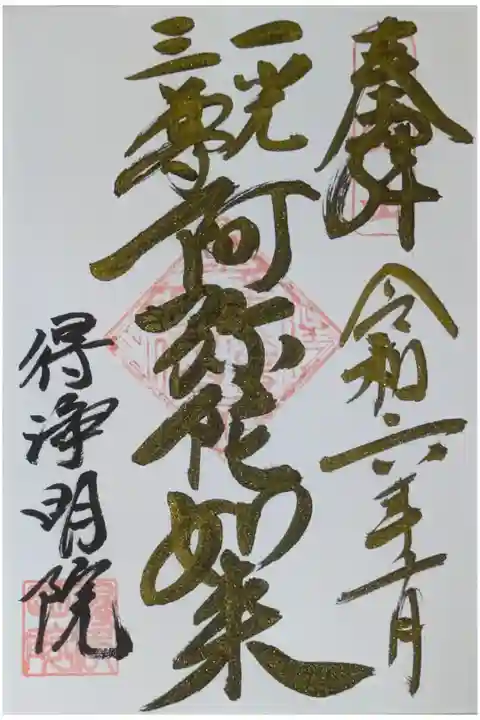 奉拝
令和六年
一光
三尊
阿弥陀如来
得浄明院